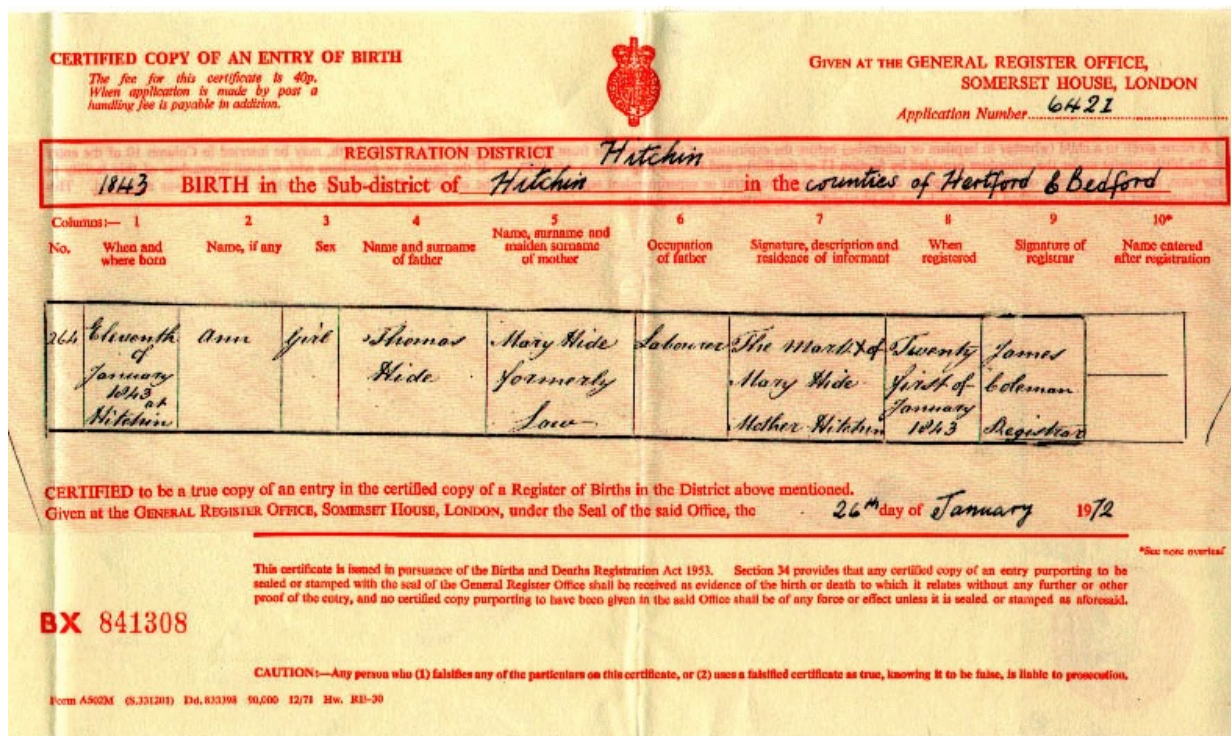 CERTIFIED COPY OF AN ENTRY OF BIRTH
The fee for this certificate is 40p.
When application is made by post a
handling fee is payable in addition.
GIVEN AT THE GENERAL REGISTER OFFICE,
SOMERSET HOUSE, LONDON
Application Number 6421
REGISTRATION DISTRICT Hitchin
1843 BIRTH in the Sub-district of Hitchin in the counties of Hertford & Bedford
Columns:— 1 2 3 4 5 6 7 8 9 10*
No. When and where born Name, if any Sex Name and surname of father Name, surname and maiden surname of mother Occupation of father Signature, description and residence of informant When registered Signature of registrar Name entered after registration
264 Eleventh Ann Girl Thomas Mary Hide Labourer The mark X of Twenty James
of January Hide formerly Mary Hide first of Coleman
1843 at Hitchin Law Mother Hitchin January 1843 Registrar
CERTIFIED to be a true copy of an entry in the certified copy of a Register of Births in the District above mentioned.
Given at the GENERAL REGISTER OFFICE, SOMERSET HOUSE, LONDON, under the Seal of the said Office, the 26th day of January 1972
*See note overleaf
This certificate is issued in pursuance of the Births and Deaths Registration Act 1953. Section 34 provides that any certified copy of an entry purporting to be
sealed or stamped with the seal of the General Register Office shall be received as evidence of the birth or death to which it relates without any further or other
proof of the entry, and no certified copy purporting to have been given in the said Office shall be of any force or effect unless it is sealed or stamped as aforesaid.
BX 841308
CAUTION:—Any person who (1) falsifies any of the particulars on this certificate, or (2) uses a falsified certificate as true, knowing it to be false, is liable to prosecution.
Form A502M (S.331201) Dd. 833398 90,000 12/71 Hw. RD-30